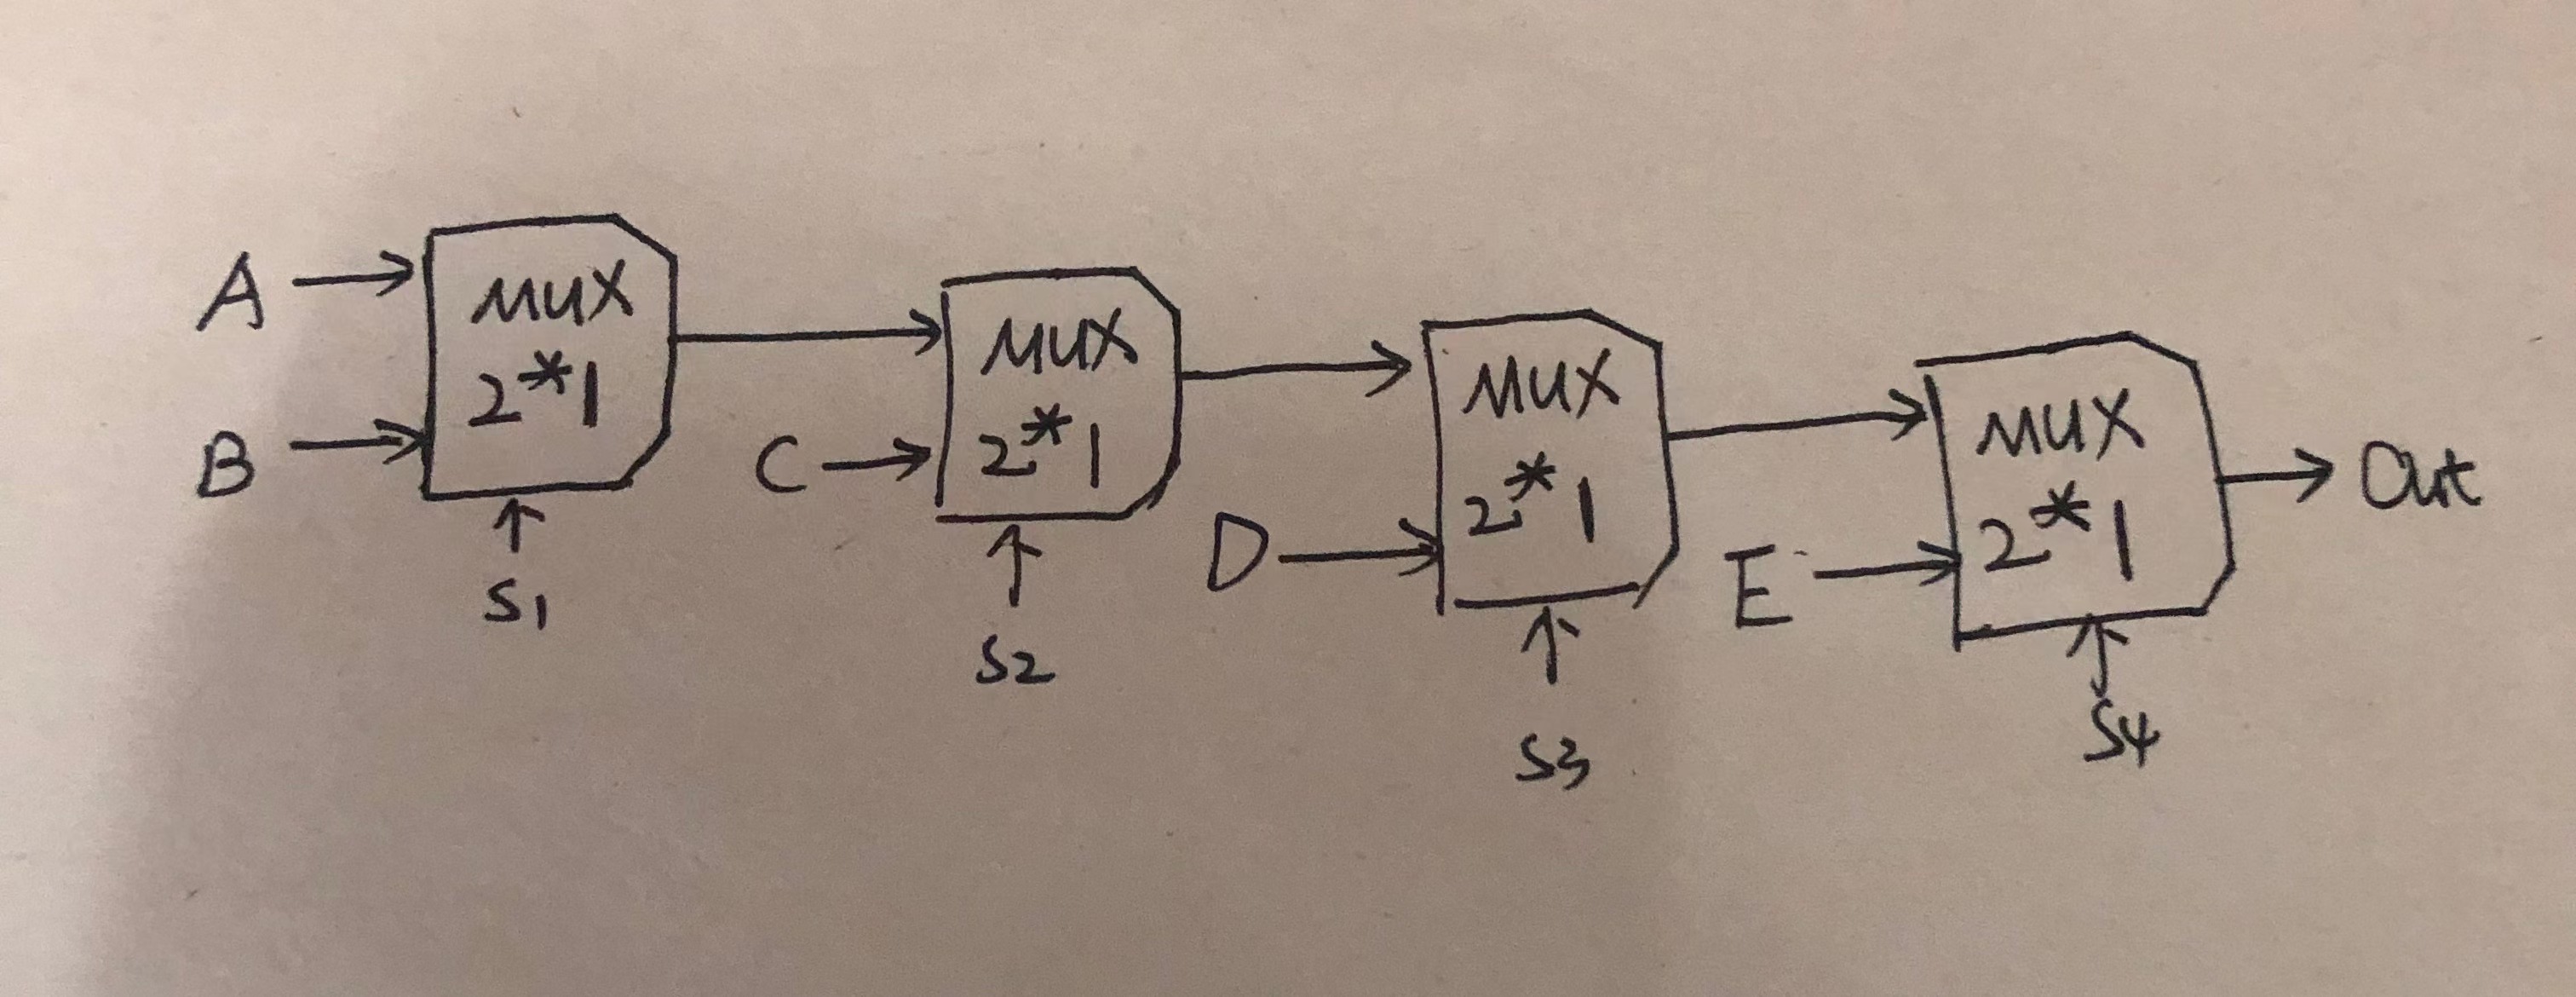 A
B
MUX
2*1
S1
C
MUX
2*1
S2
D
MUX
2*1
S3
E
MUX
2*1
S4
Out